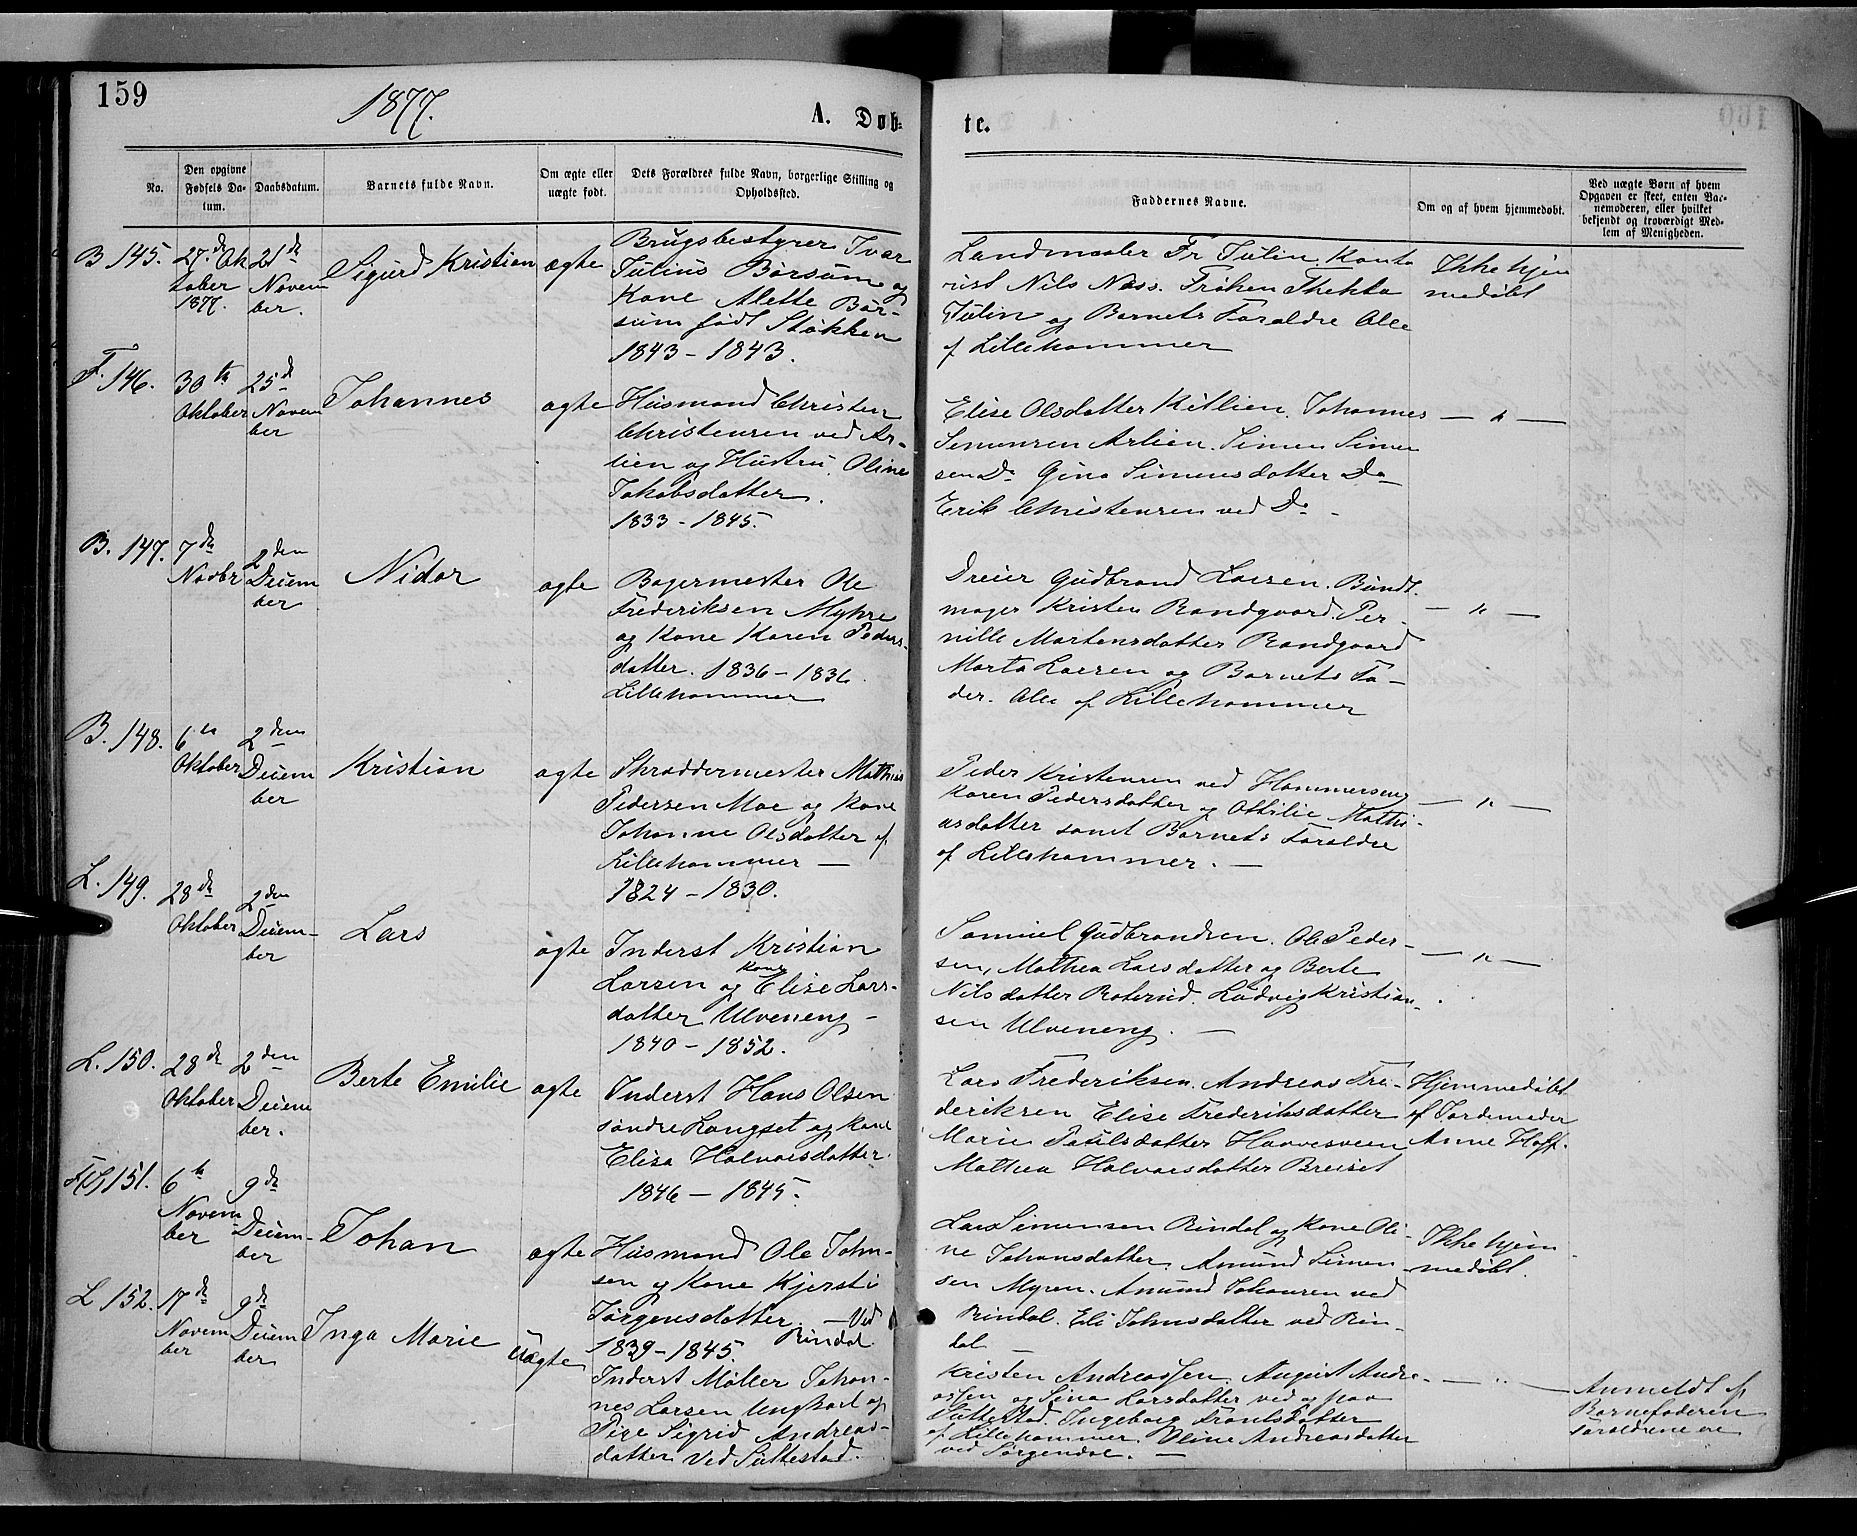 159
1877.
A. Døb-
te.
No.
Den opgivne
Fødsels Da-
tum.
Daabsdatum.
Barnets fulde Navn.
Om ægte eller
uægte født.
Dets Forældres fulde Navn, borgerlige Stilling og
Opholdssted.
Faddernes Navne.
Om og af hvem hjemmedøbt.
Ved uægte Børn af hvem
Opgaven er skeet, enten Bar-
nemoderen, eller hvilket
bekjendt og troværdigt Med-
lem af Menigheden.
B 145.
27. de Ok
tober
1877.
21 de
Novem
ber.
Sigurd Kristian
ægte
Brugsbestyrer Ivar
Julius Børsum og
Kone Alette Bør-
sum født Støkken
1843 - 1843.
Landmaaler Fr Julin. Konto
rist Nils Næss. Frøken Thekla
Julin og Barnets Forældre Alle
af Lillehammer
Ikke hjem
medøbt
F. 146.
30 te
Oktober
25 d
Novem
ber
Johannes
ægte
Husmand Christen
Christensen ved
lien og Hustru Oline
Jakobsdatter.
1833 - 1845.
Elise Olsdatter Johannes
Simensen Simen Simen
sen Do Gina Simensdatter Do
Erik Christensen ved Do -
— " —
B. 147.
7 de
Novbr
2 den
Decem
ber
Nidar
ægte
Bagermester Ole
Frederiksen Myhre
og Kone Karen Peders-
datter. 1836 - 1836
Lillehammer
Dreier Gudbrand Larsen. Bundt
mager Kristen Randgaard. Per-
nille Martensdatter Randgaard
Marta Larsen og Barnets Fa-
der. Alle af Lillehammer
— " —
B. 148.
6 te
Oktober
2 den
Decem
ber
Kristian
ægte
Skræddermester Mathias
Pedersen Moe og Kone
Johanne Olsdatter af
Lillehammer —
1824 - 1830.
Peder Kristensen ved Hammerseng
Karen Pedersdatter og Othilie Mathi-
asdatter samt Barnets Forældre
af Lillehammer. —
— " —
L. 149.
28 de
Oktober
2 den
Decem-
ber
Lars
ægte
Inderst Kristian
Larsen og Kone Elise Lars-
datter Ulveneng -
1840 - 1852.
Samuel Gudbrandsen. Ole Peder-
sen, Mathea Larsdatter og Berte
Nilsdatter Roterud. Ludvig Kristian-
sen Ulveneng. —
— " —
L. 150.
28 de
Oktober
2 den
Decem
ber.
Berte Emilie
ægte
Inderst Hans Olsen
søndre Langset og Kone
Elisa Halvorsdatter.
1846 - 1845.
Lars Frederiksen. Andreas Fre-
deriksen Elise Frederiksdatter
Marie Paulsdatter Haavesveen
Mathea Halvorsdatter Breiset
Hjemmedøbt
af Jordemoder
Anne Hoff.
151.
6 te
Novem-
ber
9 de
Decem-
ber
Johan
ægte
Husmand Ole John-
sen og Kone Kjersti
Jørgensdatter. — Ved
1839 - 1845. Rindal
Lars Simensen Rindal og Kone Oli-
ne Johansdatter. Amund Simen-
sen Myren. Amund Johansen ved
Rindal. Eli Johnsdatter ved Rin-
dal —
Ikke hjem
medøbt.
L 152.
17 de
Novem
ber
9 de
Decem
ber
Inga Marie
Uægte
Inderst Møller Johan-
nes Larsen Ungkarl og
Pige Sigrid Andreas-
datter ved Suttestad.
Kristen Andreassen. August Andre-
assen og Sina Larsdatter ved og paa
Suttestad. Ingeborg Frantsdatter
af Lillehammer. Oline Andreasdatter
ved Jørgendal. —
— " —
Anmeldt af
Barnefaderen
Forældrene ere